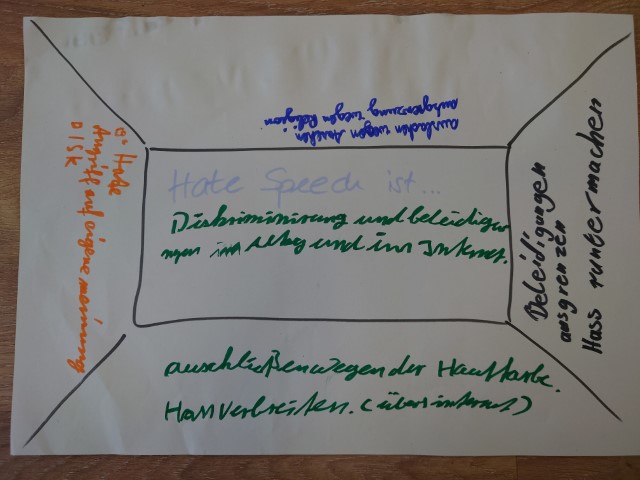 Hate Speech ist...
Diskriminirung und beleidigun
ngen im Alltag und im Internet.
auslachen wegen
ausgrenzung wegen Religion
Beleidigungen
ausgrenzen
Hass runtermachen
auschließen wegen der Hautfarbe.
Hass verbreiten. (übers internet)
Angriff auf eigene meinung